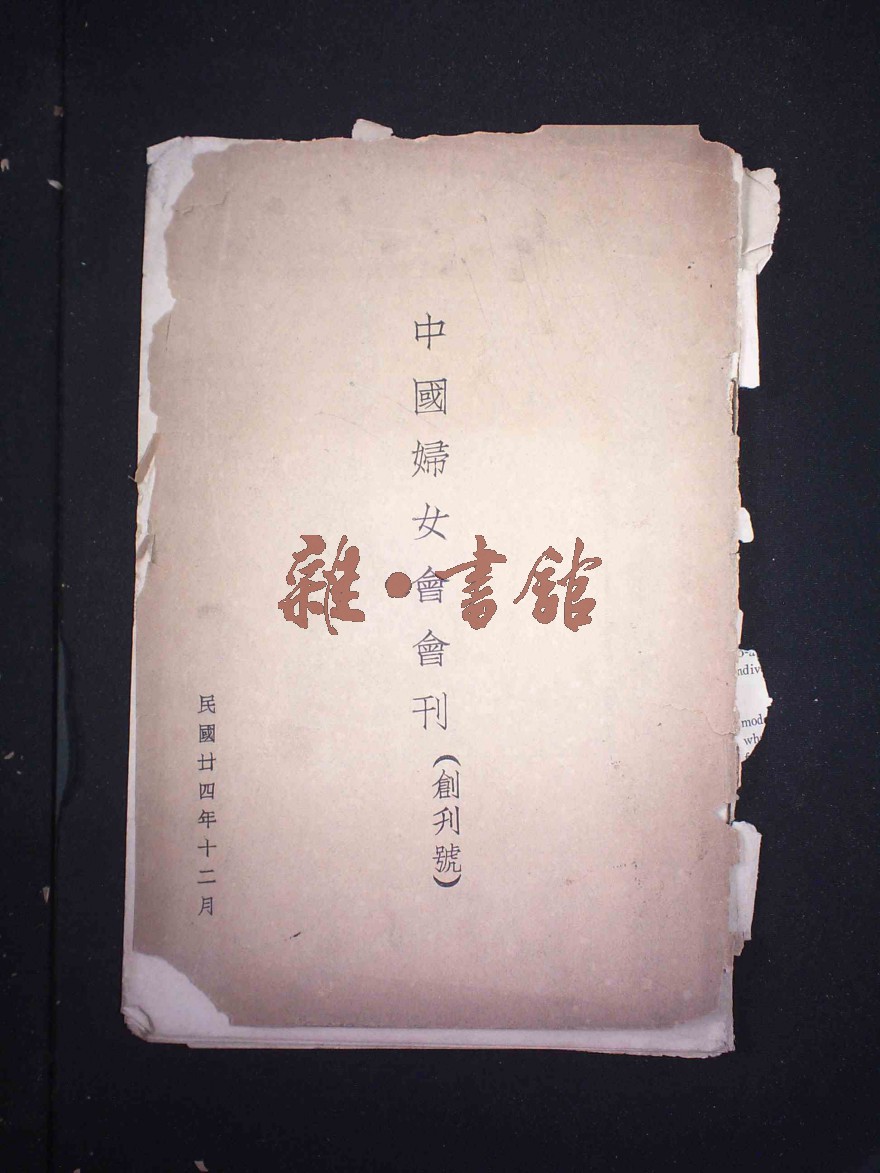 中國婦女會會刊(創刊號)
民國廿四年十二月
雜·書館
ndiv
mod
wh